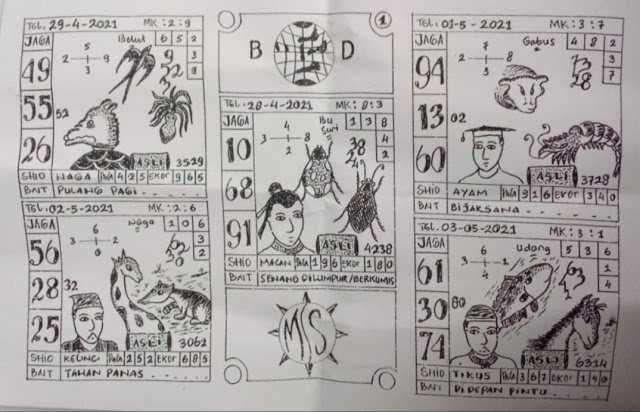 TGL, 29-4-2021 MK : 2 : 9
JAGA
49
55
26
Belut
6 5 2
3
9
5
2 8
3 9
52
ASLI 3529
SHIO NAGA PALA 4 2 5 EKOR 9 6 5
BAIT PULANG PAGI
TGL, 02-5-2021 MK : 2 : 6
JAGA
56
28
25
Naga
1 0 6
3
2
3
6 0 2
32
ASLI 3062
SHIO KELINCI PALA 2 5 2 EKOR 6 8 5
BAIT TAHAN PANAS
B D
1
TGL, 28-4-2021 MK : 8 : 3
JAGA
10
68
91
Ibu Suri
1 3 8
4
2
4
3 8
2
38
ASLI 4238
SHIO MACAN PALA 1 9 6 EKOR 1 8 0
BAIT SENANG DILUMPUR/BERKUMIS
MSS
TGL, 01-5-2021 MK : 3 : 7
JAGA
94
13
60
Gabus
4 8 2
3
7
7
2 8
3
73
28
02
ASLI 3728
SHIO AYAM PALA 9 1 6 EKOR 3 4 0
BAIT BIJAKSANA
TGL, 03-05-2021 MK : 3 : 1
JAGA
61
30
74
Udang
5 3 6
1
4
6
3 1
4
63
80
ASLI 6314
SHIO TIKUS PALA 3 6 7 EKOR 1 4 0
BAIT DIDEPAN PINTU